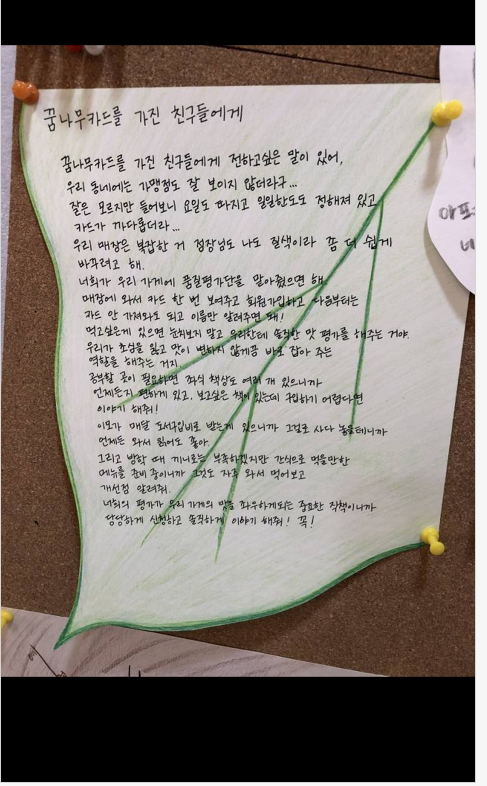 꿈나무카드를 가진 친구들에게
꿈나무카드를 가진 친구들에게 전하고싶은 말이 있어,
우리 동네에는 가맹점도 잘 보이지 않더라구...
잘은 모르지만 들어보니 요일도 따지고 일일한도도 정해져 있고
카드가 까다롭더라...
우리 매장은 복잡한 거 점장님도 나도 질색이라 좀 더 쉽게
바꾸려고 해.
너희가 우리 가게에 품질평가단을 맡아줬으면 해.
매장에 와서 카드 한 번 보여주고 회원가입하고 다음부터는
카드 안 가져와도 되고 이름만 알려주면 돼!
먹고싶은게 있으면 눈치보지 말고 우리한테 솔직한 맛 평가를 해주는 거야.
우리가 초심을 잃고 맛이 변하지 않게끔 바로 잡아 주는
역할을 해주는 거지
공부할 곳이 필요하면 좌식 책상도 여러 개 있으니까
언제든지 편하게 있고, 보고싶은 책이 있는데 구입하기 어렵다면
이야기 해줘!
이모가 매달 도서구입비로 받는게 있으니까 그걸로 사다 놓을테니까
언제든 와서 읽어도 좋아.
그리고 방학 때 끼니로는 부족하겠지만 간식으로 먹을만한
메뉴를 준비 중이니까 그것도 자주 와서 먹어보고
개선점 알려줘.
너희의 평가가 우리 가게의 맛을 좌우하게되는 중요한 직책이니까
당당하게 신청하고 솔직하게 이야기 해줘! 꼭!